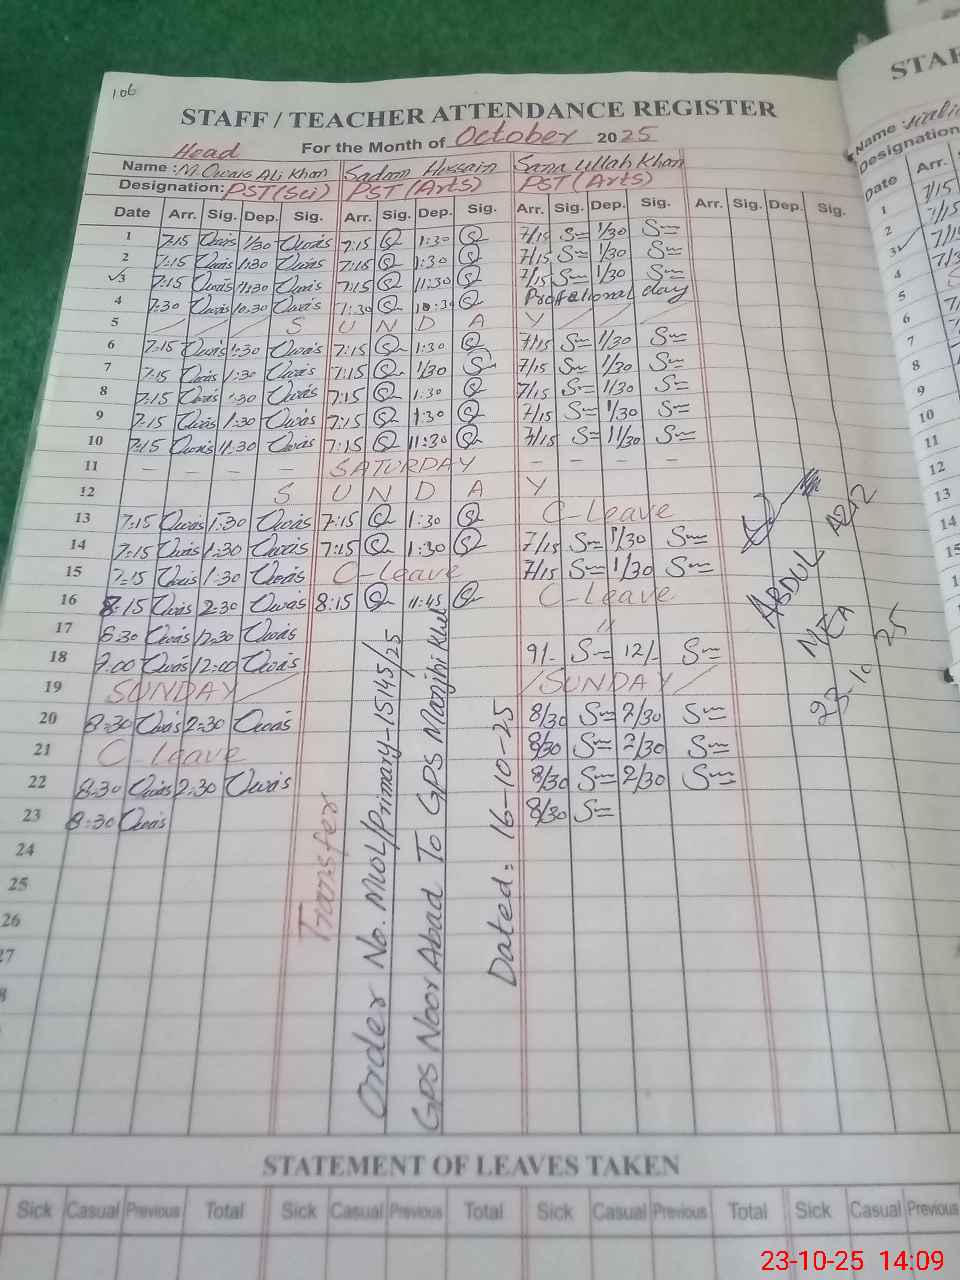 106
STAFF / TEACHER ATTENDANCE REGISTER
For the Month of October 2025
Head
Name : M. Owais Ali Khan Sadam Hussain Sana Ullah Khan
Designation: PST (Sci) PST (Arts) PST (Arts)
Date Arr. Sig. Dep. Sig. Arr. Sig. Dep. Sig. Arr. Sig. Dep. Sig. Arr. Sig. Dep. Sig.
1 7:15 Owais 1:30 Owais 7:15 1:30 7/15 1/30
2 7:15 Owais 1:30 Owais 7:15 1:30 7/15 1/30
√3 7:15 Owais 11:30 Owais 7:15 11:30 7/15 1/30
4 7:30 Owais 10:30 Owais 7:30 10:30 Profational day
5 S U N D A Y
6 7:15 Owais 1:30 Owais 7:15 1:30 7/15 1/30
7 7:15 Owais 1:30 Owais 7:15 1/30 7/15 1/30
8 7:15 Owais 1:30 Owais 7:15 1:30 7/15 1/30
9 7:15 Owais 1:30 Owais 7:15 1:30 7/15 1/30
10 7:15 Owais 11:30 Owais 7:15 11:30 7/15 11/30
11 – – – – SATURDAY – – – –
12 S U N D A Y
13 7:15 Owais 1:30 Owais 7:15 1:30 C-Leave
14 7:15 Owais 1:30 Owais 7:15 1:30 7/15 1/30
15 7:15 Owais 1:30 Owais C-Leave 7/15 1/30
16 8:15 Owais 2:30 Owais 8:15 11:45 C-Leave
17 8:30 Owais 12:30 Owais "
18 9:00 Owais 12:00 Owais 9/- 12/-
19 SUNDAY SUNDAY
20 8:30 Owais 2:30 Owais 8/30 2/30
21 C-Leave 8/30 2/30
22 8:30 Owais 2:30 Owais 8/30 2/30
23 8:30 Owais 8/30
24
25
26
27
Transfer
Order No. MWL/Primary-15145/25
GPS Noor Abad To GPS Manjhi Khel
Dated: 16-10-25
ABDUL AZIZ
MEA
23-10 25
STATEMENT OF LEAVES TAKEN
Sick Casual Previous Total Sick Casual Previous Total Sick Casual Previous Total Sick Casual Previous
STAF
Name :
Designation
Date Arr.
1 7/15
2 7/15
3
4
5
6
7
8
9
10
11
12
13
14
15
23-10-25 14:09